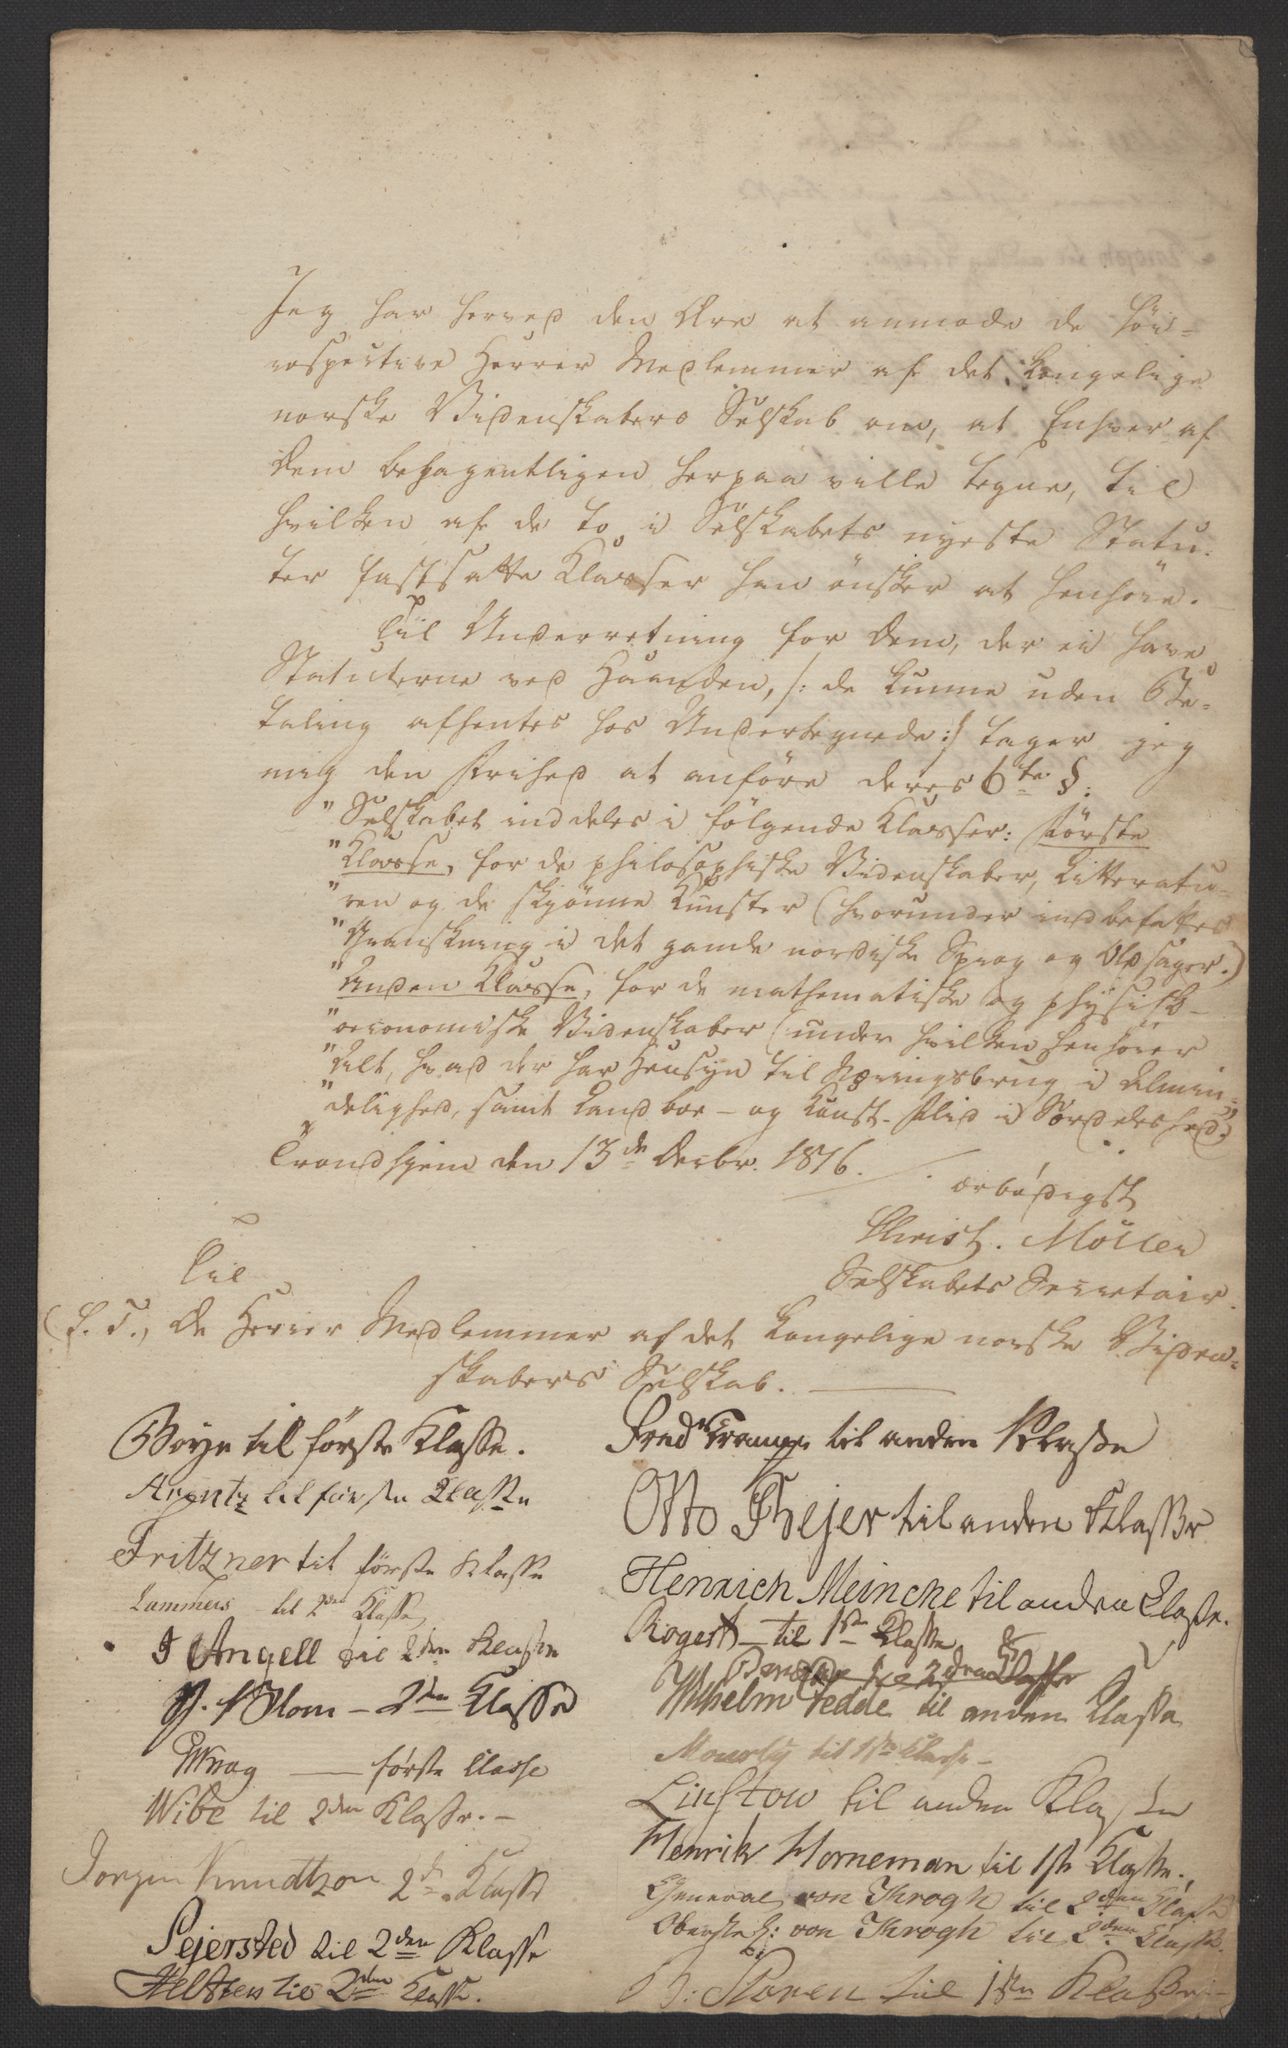 Jeg har herved den Ære at anmode de höi-
respective Herrer Medlemmer af det Kongelige
norske Videnskabers Selskab om, at Enhver af
Dem behagentligen herpaa ville tegne, til
hvilken af de to i Selskabets nyeste Statu-
ter fastsatte Klasser han önsker at henhöre.
Til Underretning for Dem, der ei have
Statuterne ved Haanden, /: de kunne uden Be-
taling afhentes hos Undertegnede :/ tager jeg
mig den Frihed at anföre deres 6te §:
"Selskabet inddeles i fölgende Klasser: Förste
"Klasse, for de philosophiske Videnskaber, Litteratu-
"ren og de skjönne Kunster (hvorunder indbefattes
"Granskning i det gamle nordiske Sprog og Oldsager.)
"Anden Klasse, for de mathematiske og physisk-
"oeconomiske Videnskaber (under hvilken henhörer
"Alt, hvad der har Hensyn til Næringsbrug i Almin-
"delighed, samt Landboe- og Kunst-Flid i Særdeleshed.)"
Trondhjem den 13de Decbr. 1816.
ærbödigst
Christ. Möller
Selskabets Secretair.
Til
(S. T.) De Herrer Medlemmer af det Kongelige norske Viden-
skabers Selskab.
Boye til förste Klasse.
Arentz til förste Klasse
Fritzner til förste Klasse
Lammers til 2den Klasse
J Angell til 2den Klasse
Hlom - 2den Klasse
Krag — förste Classe
Wibe til 2den Klasse. -
Jørgen Knudtzon 2d. Klasse
Sejersted til 2den Klasse
til 2den Klasse.
Fred til anden Klasse
Otto Thejer til anden Klasse
Henrich Meincke til anden Classe.
Rogert - til 1ste Klasse
til 2den Classe
Wilhelm Tedde til anden Klasse
til 1ste Classe -
Linstow til anden Klasse
Henrik Horneman til 1ste Klasse.
General von Throgh til 2den Klasse
Oberste L: von Throgh til 2den Klasse.
til 1ste Klasse